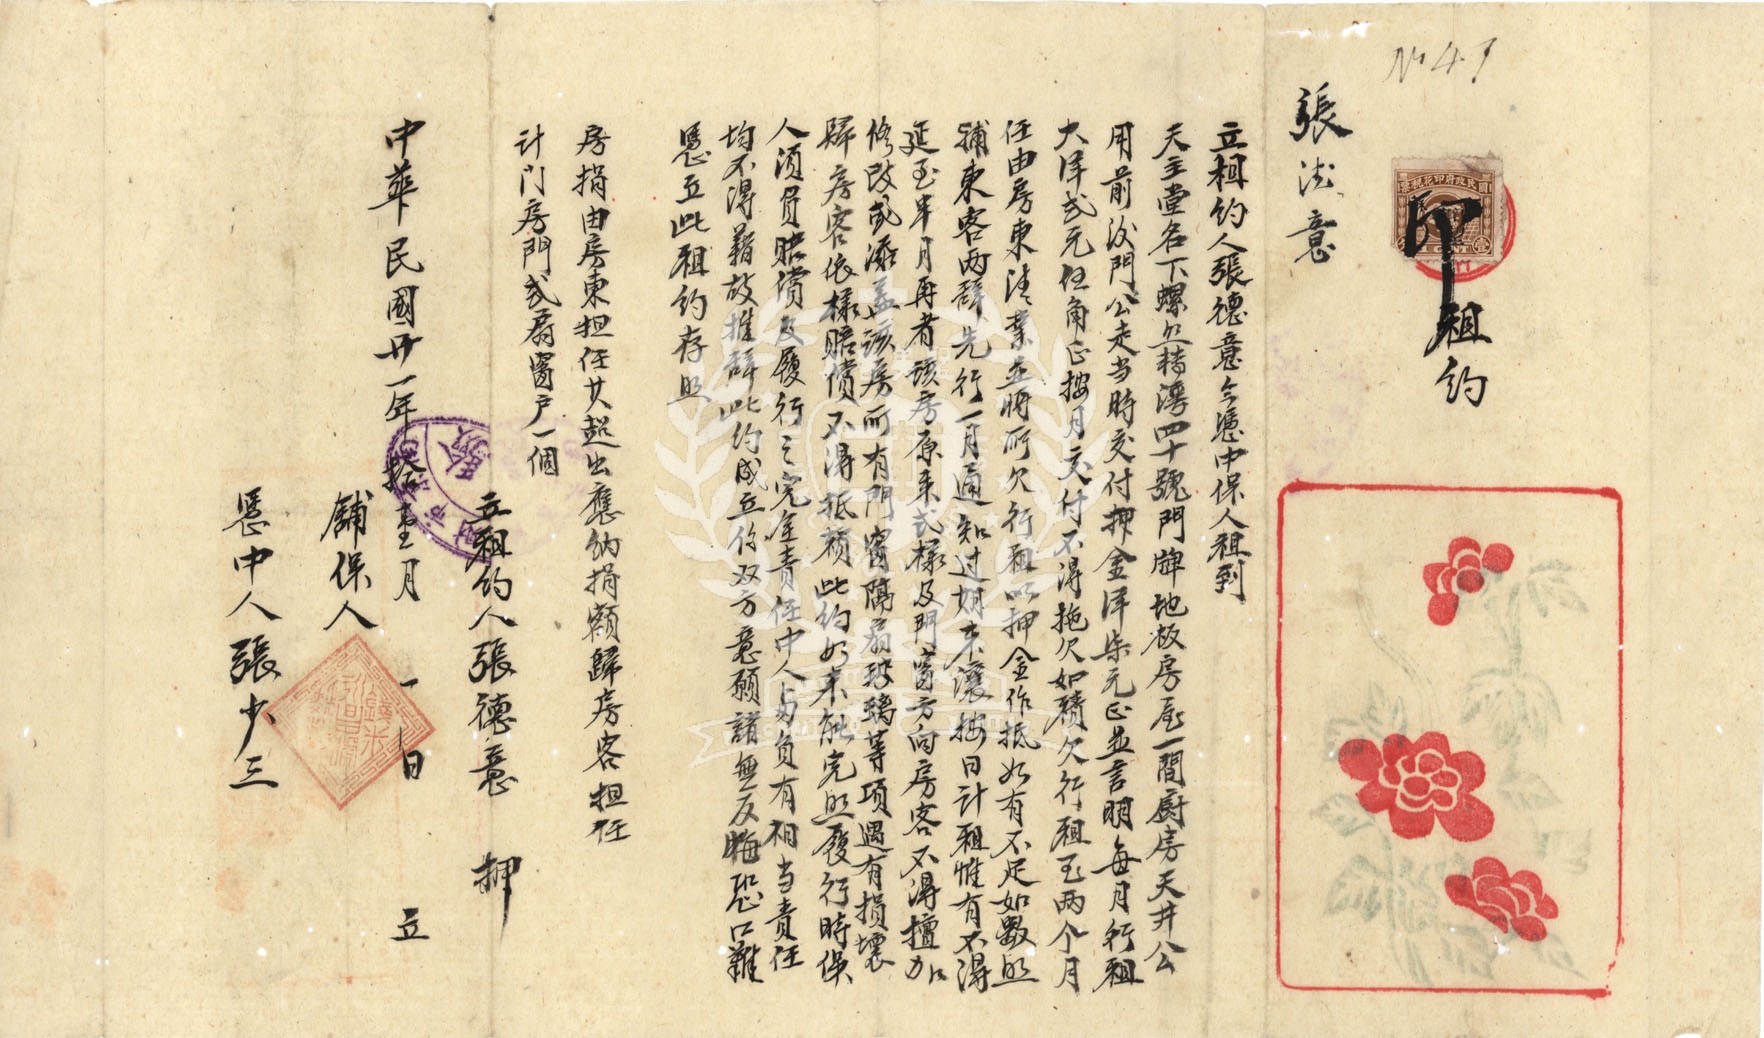 № 47
國民政府印花稅票
印
租約
張德意
立租約人張德意今憑中保人租到
天主堂名下螺丝轉灣四十號門牌地板房屋一間厨房天井公
用前後門公走当時交付押金洋柒元正並言明每月行租
大洋弍元伍角正按月交付不得拖欠如積欠行租至两个月
任由房東清業並將所欠行租以押金作抵如有不足如數照
補東客两辞先行一月通知过期未讓按日计租惟有不得
延至半月再者该房原来式樣及門窗方向房客不得擅加
修改或添盖该房所有門窗隔扇玻璃等項遇有損壞
歸房客依樣賠償不得抵賴此約如未能完照履行時保
人須負賠償及履行之完全責任中人与负有相当責任
均不得藉故推辞此約成立係双方意願諸無反悔恐口難
憑立此租約存照
房捐由房東担任其超出應納捐額歸房客担任
计門房門弍扇窗户一個
中華民國廿一年拾壹月一日 立
立租約人張德意 押
舖保人
憑中人張少三